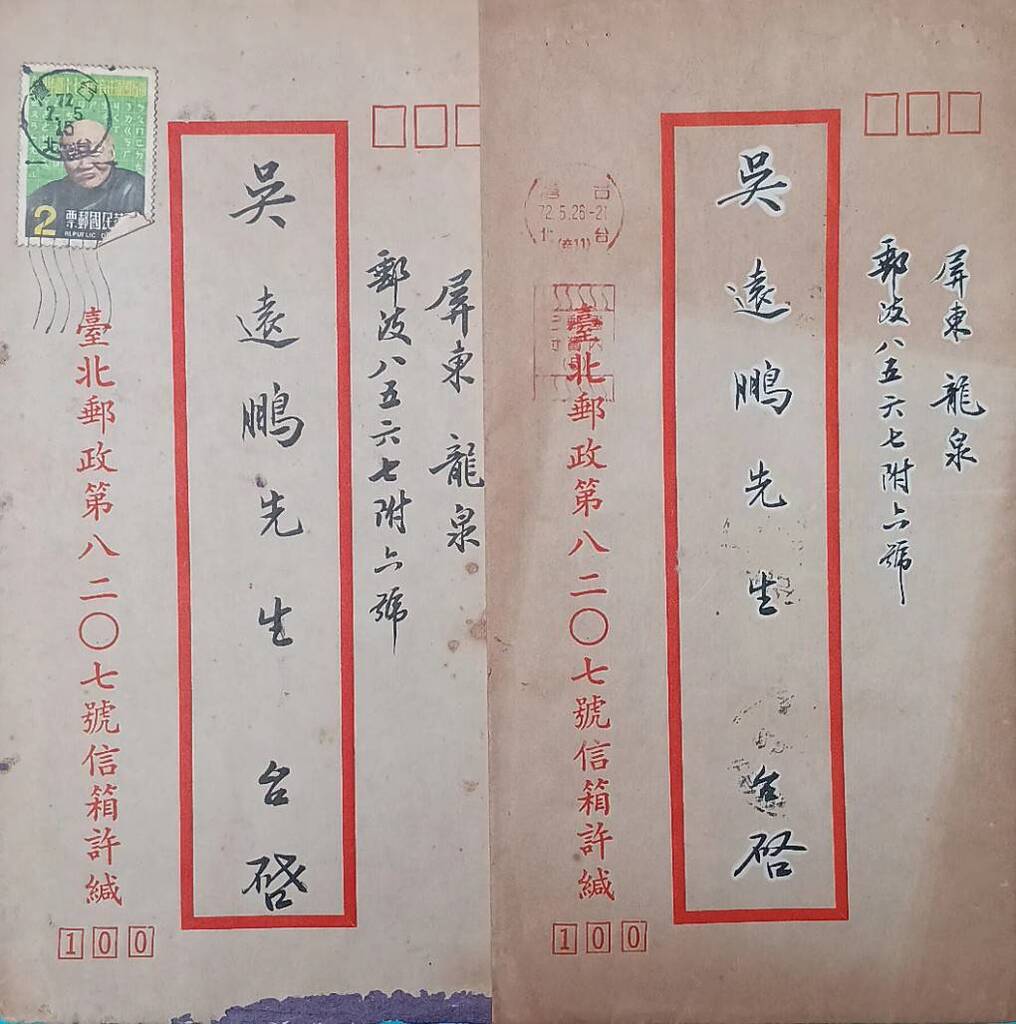 屏東 龍泉
郵政八五六七附六號
吳遠鵬先生 台啓
臺北郵政第八二〇七號信箱許緘
100
2
票郵國民
REPUBLIC
72
屏東 龍泉
郵政八五六七附六號
吳遠鵬先生 台啓
台
72.5.26-21
台北
臺北郵政第八二〇七號信箱許緘
100